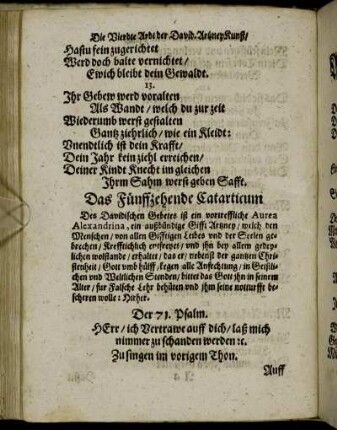 Die Vierdte Ardt der David. Artzney Kunst/
Hastu fein zugerichtet
Werd doch balte vernichtet/
Ewich bleibt dein Gewaldt.
13.
Ihr Gebew werd voralten
Als Wandt/ welch du zur zeit
Wiederumb werst gestalten
Gantz ziehrlich/ wie ein Kleidt:
Vnendtlich ist dein Krafft/
Dein Jahr kein ziehl erreichen/
Deiner Kindt Knecht im gleichen
Ihrem Sahm werst geben Safft.
Das Fünffzehende Catarticum
Des Davidischen Gebetes ist ein vortreffliche Aurea
Alexandrina, ein außbündige Gifft Artzney/ welch den
Menschen/ von allen Gifftigen Leibes und der Seelen ge-
brechen/ Kreffteichlich entfreyet/ und ihn bey allem gedey-
lichen wolstande/ erhaltet/ das er/ nebenst der gantzen Chri-
stenheit/ Gott vmb hülff/ kegen alle Anfechtung/ in Geistli-
chen und Weltlichen Stenden/ bittet das Gott ihn in seinem
Alter/ für Falsche Lehr behüten und ihm seine notturfft be-
scheren wolle: Hieher.
Der 71. Psalm.
HErr/ ich Vertrawe auff dich/ laß mich
nimmer zu schanden werden :c.
Zu singen im vorigem Thon.
Auff